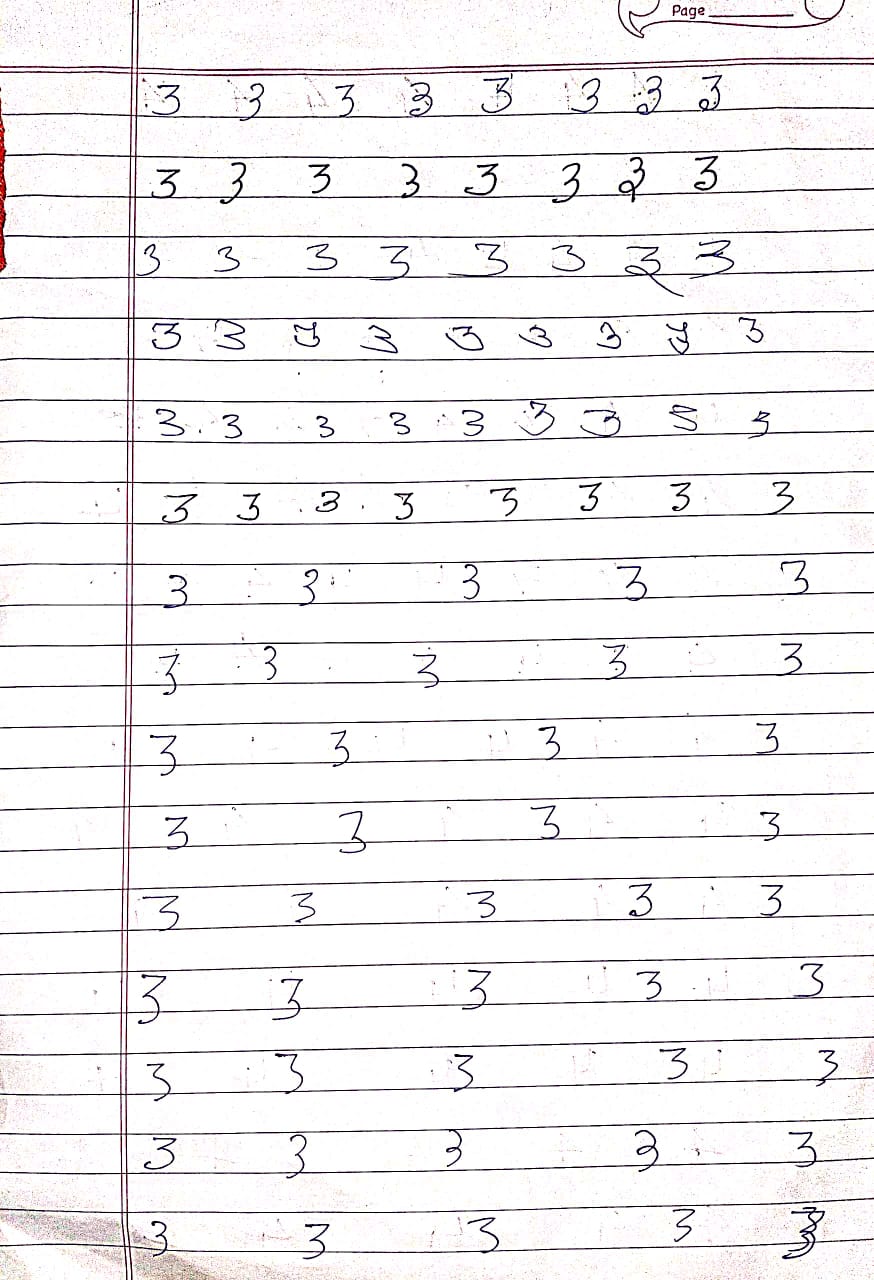 Page
3 3 3 3 3 3 3 3
3 3 3 3 3 3 3 3
3 3 3 3 3 3 3 3
3 3 3 3 3 3 3 3 3
3 3 3 3 3 3 3 5 3
3 3 3 3 3 3 3 3
3 3 3 3 3
3 3 3 3 3
3 3 3 3
3 3 3 3
3 3 3 3 3
3 3 3 3 3
3 3 3 3 3
3 3 3 3 3
3 3 3 3 3